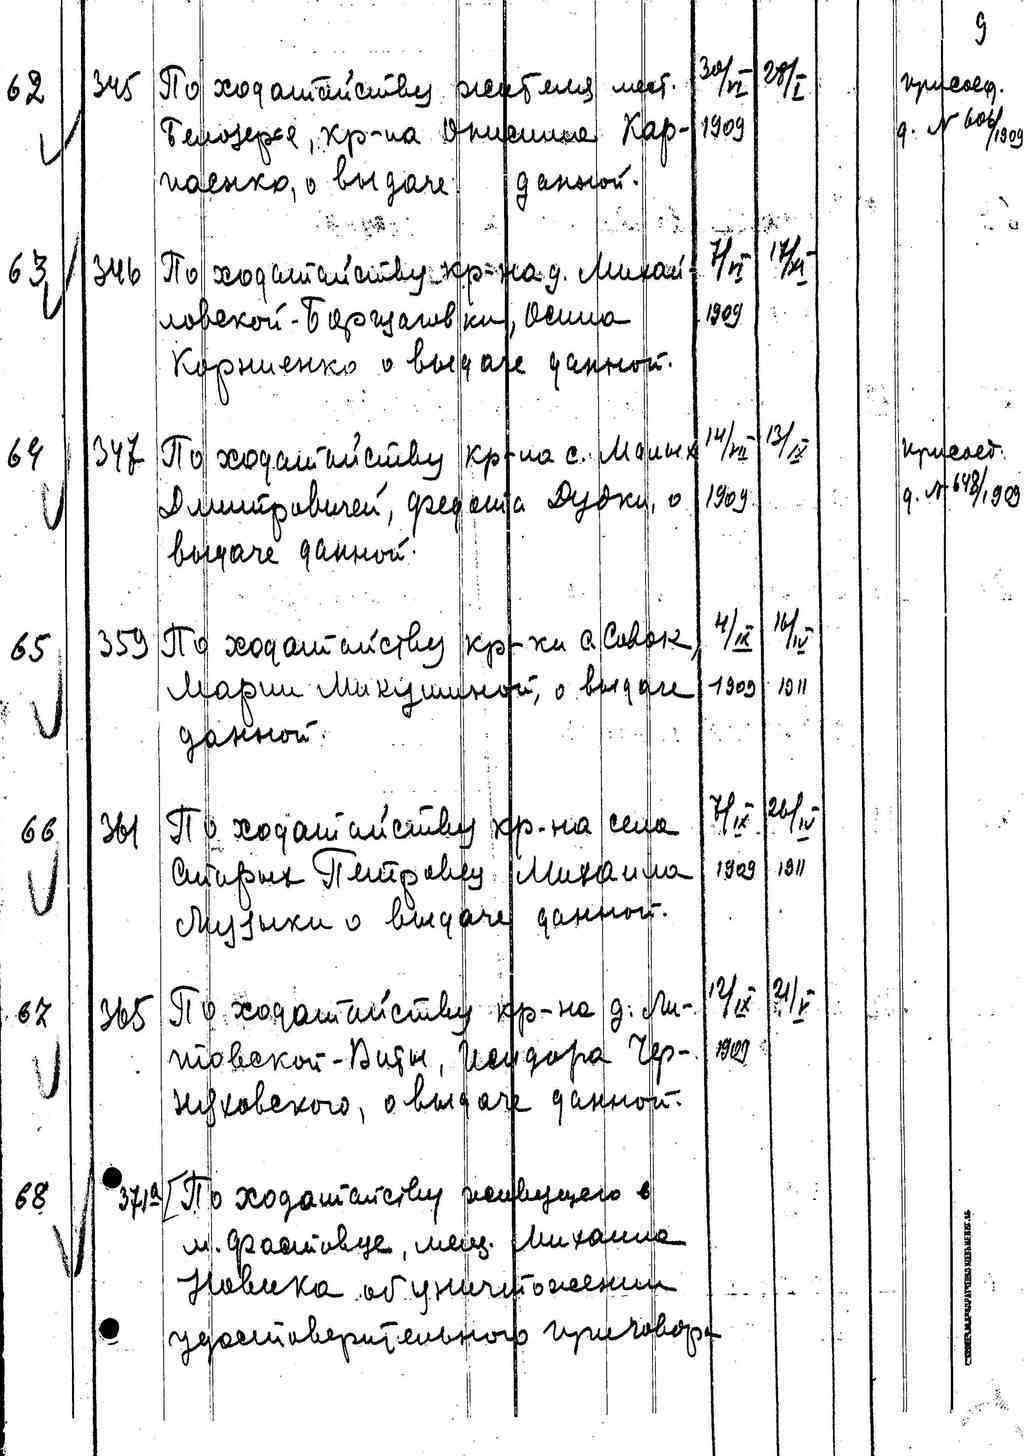 9
62 345 По ходатайству жителя мест. 30/VI 28/I присоед.
Белозерье, кр-на Онисима Кар- 1909 д. № 606/1909
паенко, о выдаче данной.
63 346 По ходатайству кр-на д. Михай- 7/VI 17/XI
ловской-Борщаговки, Осипа 1909
Корниенко о выдаче данной.
64 347 По ходатайству кр-на с. Малых 14/VII 13/IX присоед.
Дмитровичей, Федота Дудки, о 1909 д. № 648/1909
выдаче данной.
65 359 По ходатайству кр-ки с. Совок, 4/IX 16/IV
Марии Микушиной, о выдаче 1909 1911
данной.
66 361 По ходатайству кр-на села 7/IX 26/IV
Старых Петровец Михаила 1909 1911
Музыки о выдаче данной.
67 365 По ходатайству кр-на д. Ли- 12/IX 21/V
товской-Виты, Исидора Чер- 1909
нуховского, о выдаче данной.
68 371а [По ходатайству живущего в
м. Фастовце, мещ. Михаила
Новика об уничтожении
удостоверительного приговора